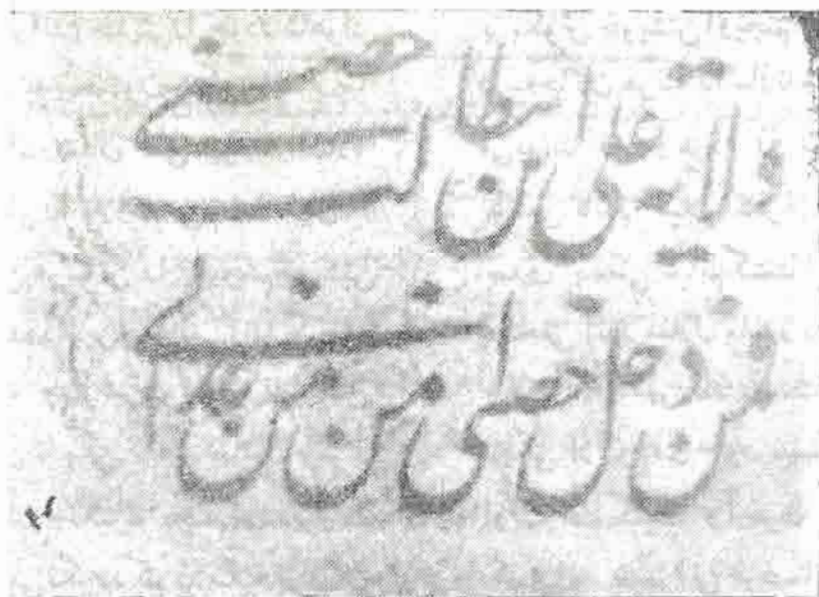 ولایت علی ابن ابیطالب حصنی
فمن دخل حصنی امن من عذابی